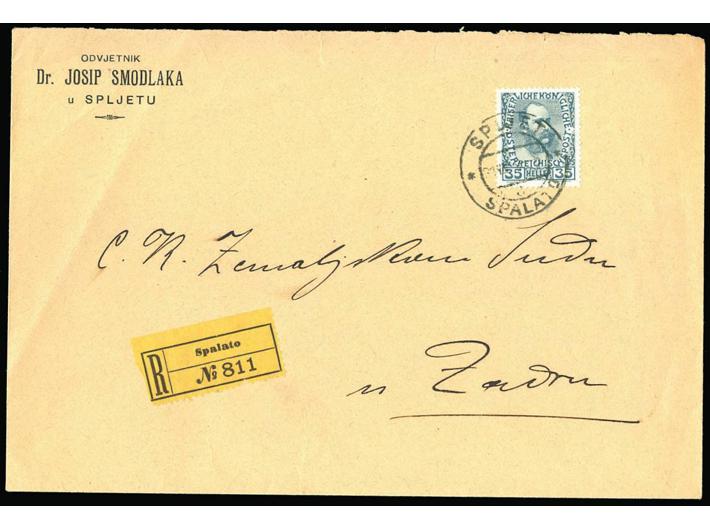 ODVJETNIK
Dr. JOSIP SMODLAKA
u SPLJETU
KAISERLICHE KÖNIGLICHE
ÖSTERREICHISCHE POST
35 HELLER 35
SPLJET
SPALATO
C. K. Zemaljskom Sudu
u Zadru
R
Spalato
№ 811